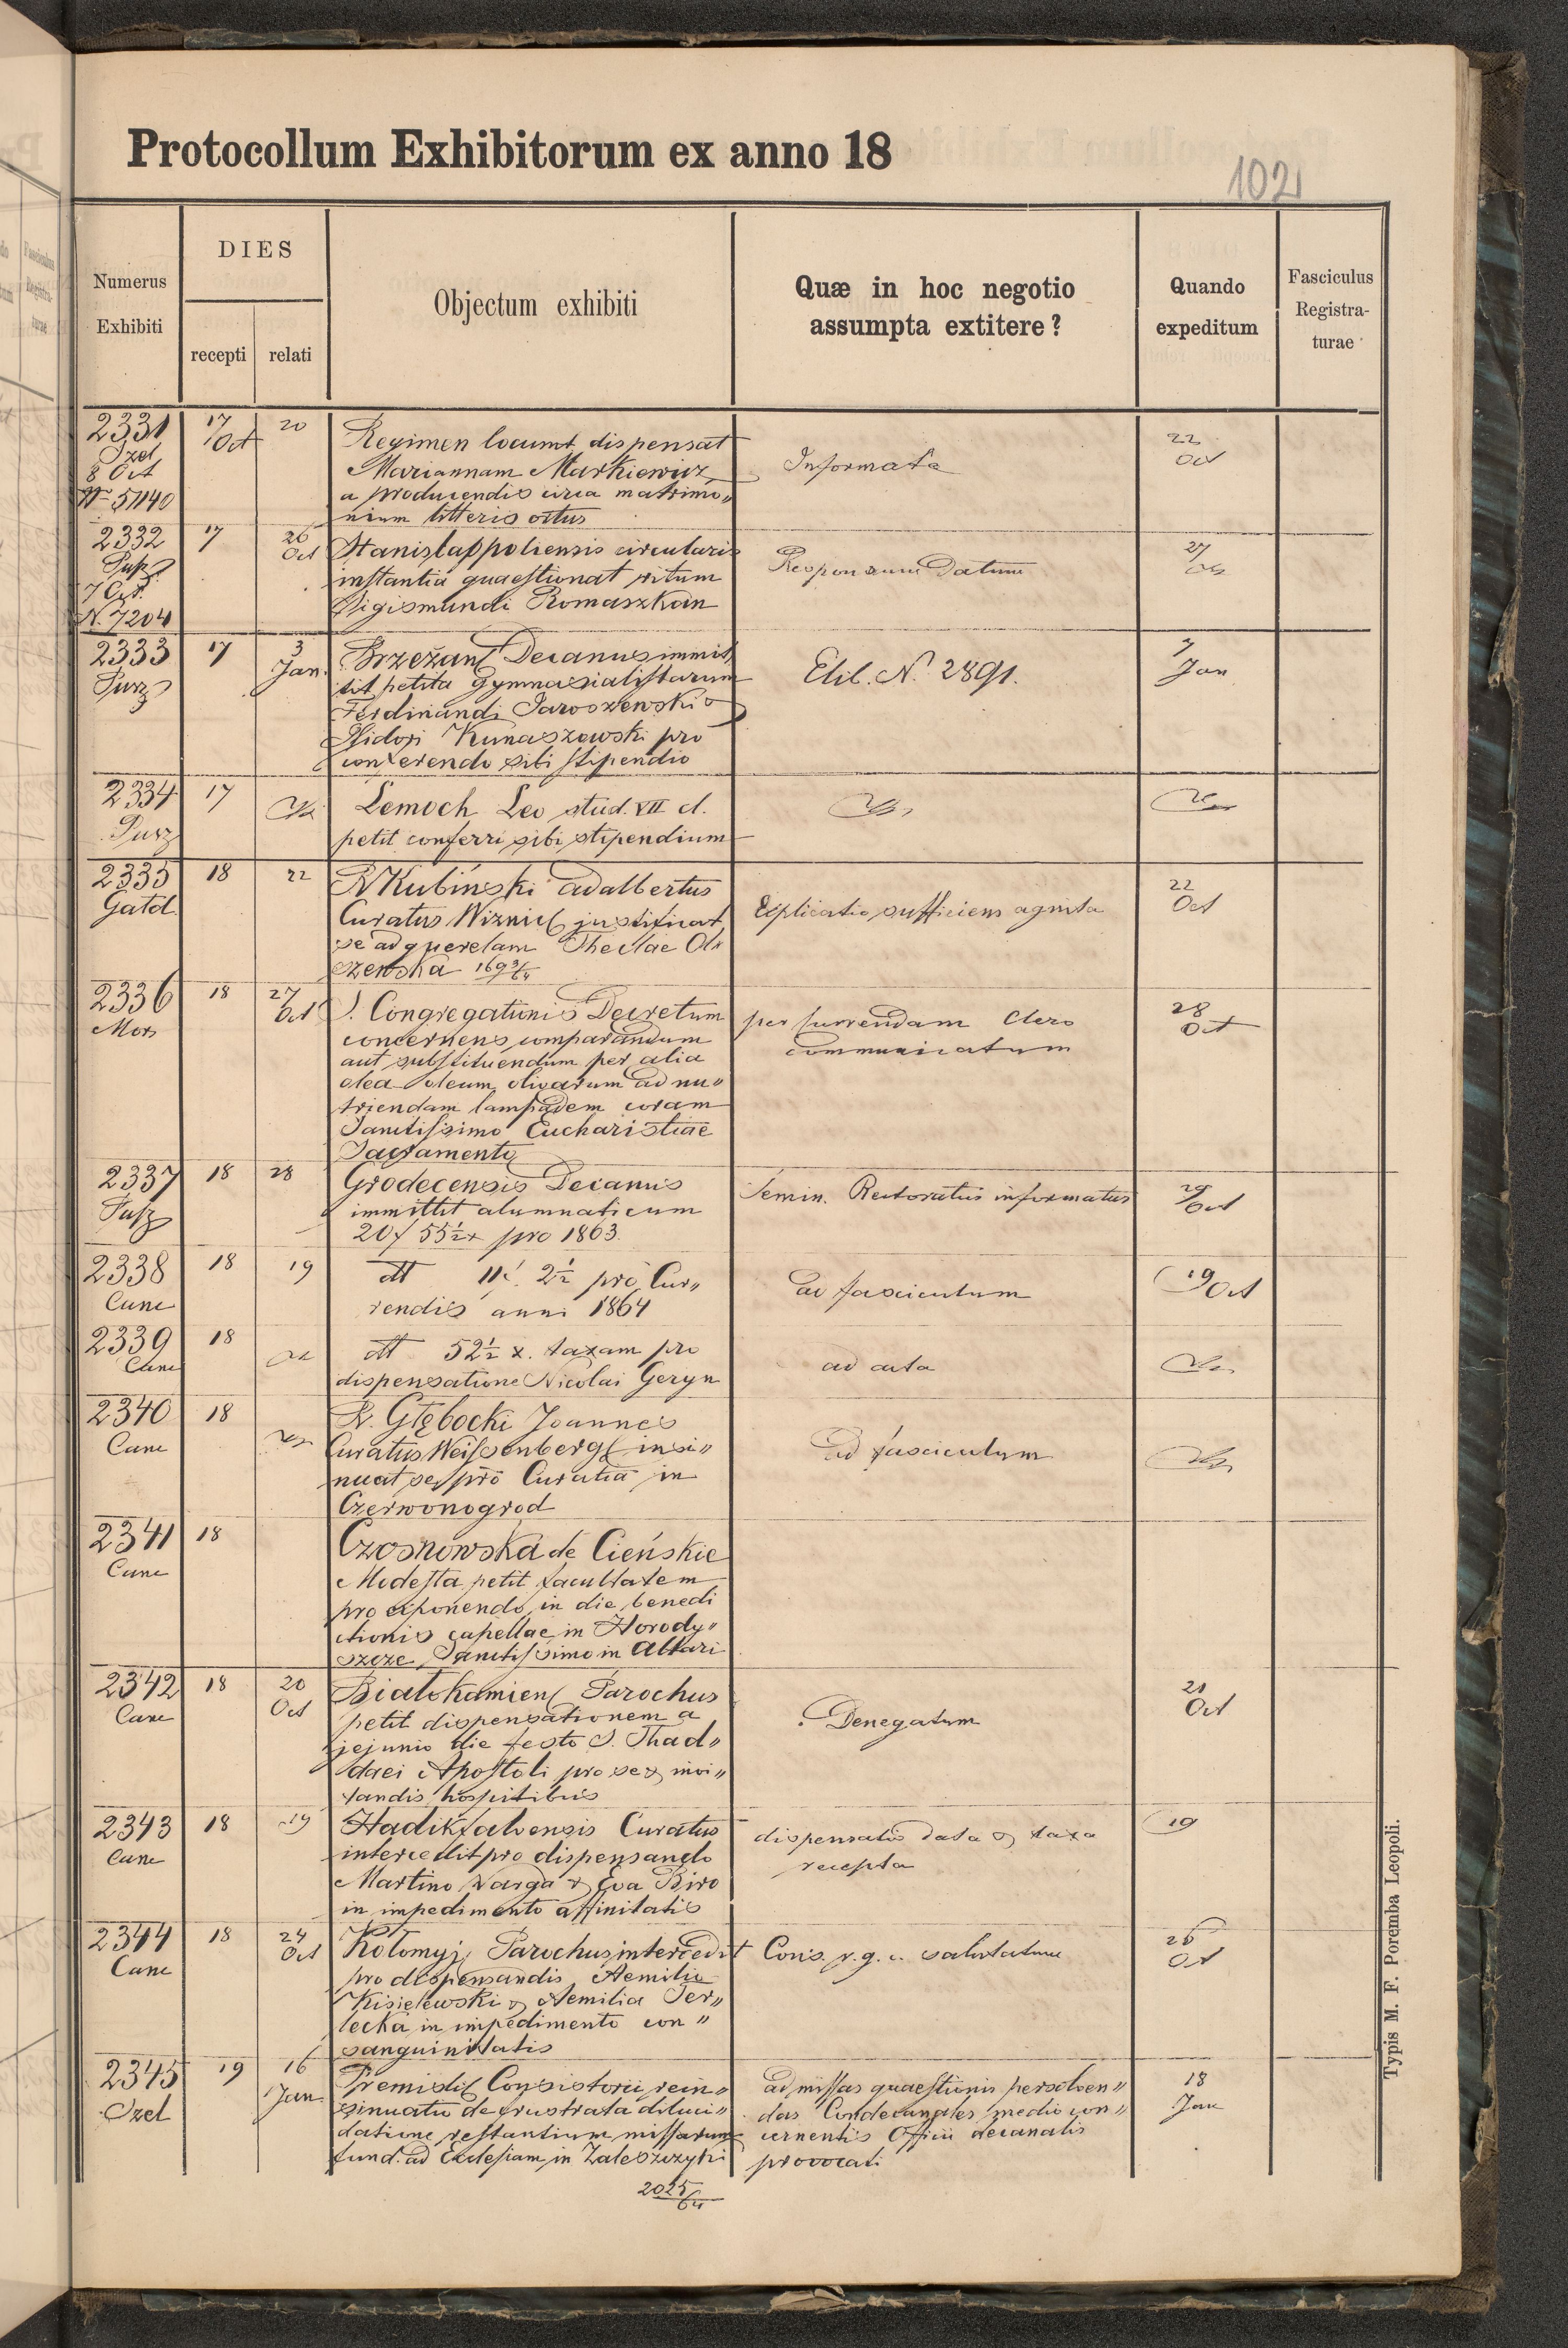 Protocollum Exhibitorum ex anno 18
102
Numerus Exhibiti
DIES
recepti
relati
Objectum exhibiti
Quæ in hoc negotio
assumpta extitere?
Quando
expeditum
Fasciculus
Registra-
turae
2331 17 Oct 20
8 Oct
Nr 51140
Regimen locumt dispensat
Mariannam Markiewicz
a producendis circa matrimo„
nium litteris ortus
Informata
22
Oct
2332 17 26 Oct
7 Oct.
N. 7204
Stanislappoliensis circularis
instantia quaestionat ritum
Sigismundi Romaszkan
Responsum datum
27
2333 17 3 Jan.
Purz
Brzežan Decanus immit„
tit petita gymnasialistarum
Ferdinandi Jaroszewski &
Isidori Kunaszowski pro
conferendo sibi stipendio
Elib. N. 2891.
7
Jan
2334 17
Purz
Lemoch Leo stud. VII cl.
petit conferri sibi stipendium
2335 18 22
Gatd
R Kubinski Adalbertus
Curatus Wiznic justificat
se ad querelam Theclae Ol„
szewska 1693/64
Explicatio sufficiens agnita
22
Oct
2336 18 27 Oct
Mors
S. Congregationis Decretum
concernens comparandum
aut substituendum per alia
olea oleum olivarum ad nu„
triendam lampadem coram
Sanctissimo Eucharistiae
Sacramento
per currendam Clero
communicatum
28
Oct
2337 18 28
Grodecensis Decanus
immittit alumnaticum
20f 55½x pro 1863.
Semin. Rectoratus informatus
29
Oct
2338 18 19
Canc
dt 11f. 2½ pro Cur„
rendis anni 1864
ad fasciculum
19 Oct
2339 18
Canc
dt 52½ x. taxam pro
dispensatione Nicolai Geryn
ad acta
2340 18
Canc
R. Głębocki Joannes
Curatus Weissenberg insi„
nuat se pro Curatia in
Czerwonogrod
ad fasciculum
2341 18
Canc
Czosnowska de Cieńskie
Modesta petit facultatem
pro exponendo in die benedi
ctionis capellae in Horody„
szcze Sanctissimo in Altari
2342 18 20 Oct
Canc
Białokamien Parochus
petit dispensationem a
jejunio die festo S. Thad„
daei Apostoli pro se & invi„
tandis hospitibus
Denegatum
21
Oct
2343 18 19
Canc
Hadikfalvensis Curatus
intercedit pro dispensando
Martino Varga & Eva Biro
in impedimento affinitatis
dispensatio data & taxa
recepta
19
2344 18 24 Oct
Canc
Kołomyj. Parochus intercedit
pro dispensandis Aemilio
Kisielewski & Aemilia Ter„
lecka in impedimento con„
sanguinitatis
Cons. r. g. c. salutatum
26
Oct
2345 19 16 Jan
Ozel
Premisl Consistorii rein„
sinuatio de frustrata diluci„
datione restantium missarum
fund. ad Ecclesiam in Zaleszczyki
2025/64
ad missas quaestionis persolven„
das Condecanales medio con„
cernentis Officii decanalis
provocati
18
Jan
Typis M. F. Poremba Leopoli.